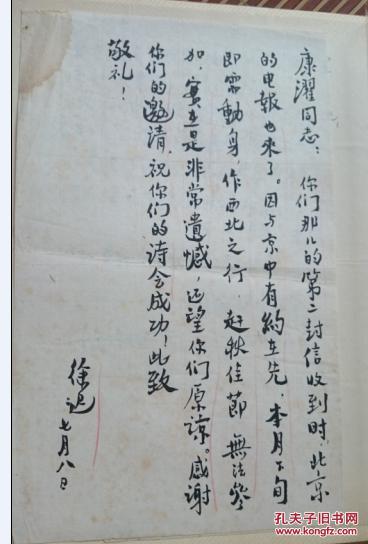 康濯同志：
你们那儿的第二封信收到时，北京
的电报也来了。因与京中有约在先，本月下旬
即需動身，作西北之行，赶秋佳節，無法参
加，實在是非常遺憾，还望你们原諒。感谢
你们的邀请，祝你们的诗会成功！此致
敬礼！
徐迟
七月八日
孔夫子旧书网
www.kongfz.com